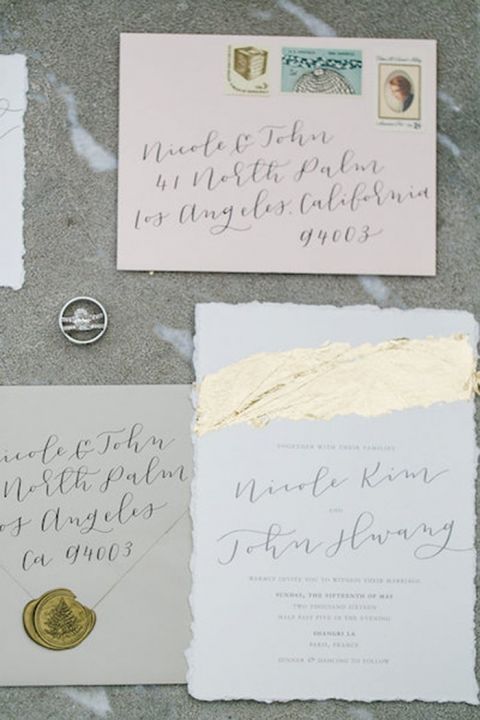 Nicole & John
41 North Palm
Los Angeles. California
94003
TOGETHER WITH THEIR FAMILIES
Nicole Kim
AND
John Hwang
WARMLY INVITE YOU TO WITNESS THEIR MARRIAGE
SUNDAY, THE FIFTEENTH OF MAY
TWO THOUSAND SIXTEEN
HALF PAST FIVE IN THE EVENING
SHANGRI LA
PARIS, FRANCE
DINNER & DANCING TO FOLLOW
icole & John
North Palm
os Angeles
Ca 94003